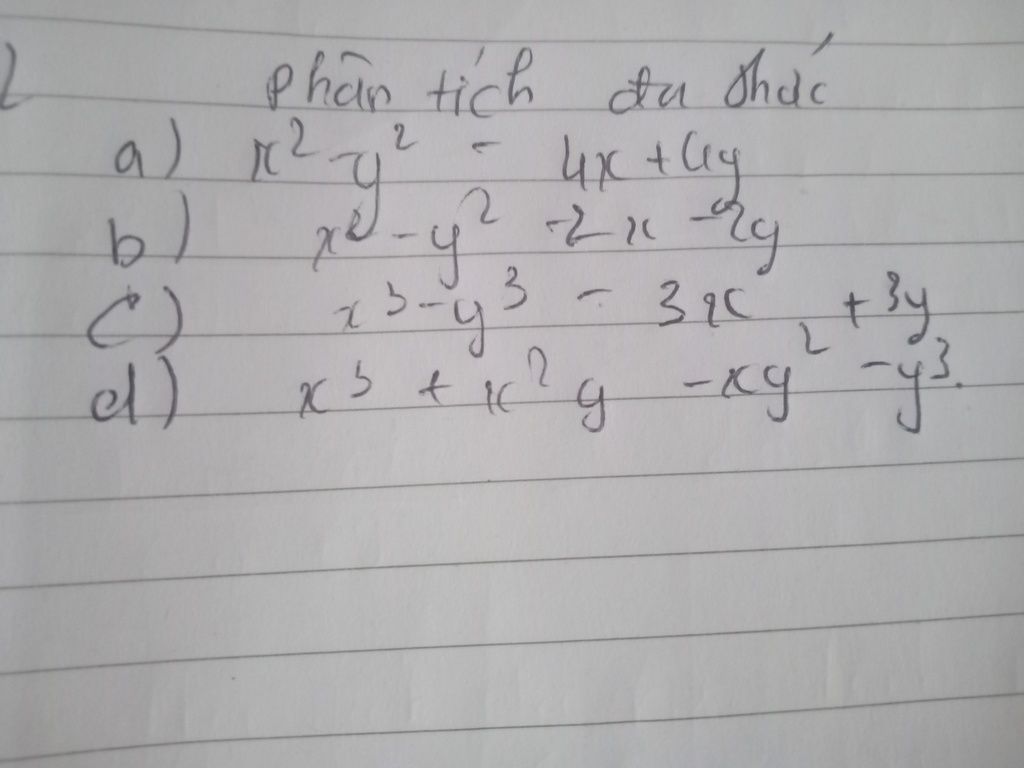 2 phân tích đa thức
a) x² - y² - 4x + 4y
b) x² - y² - 2x - 2y
c) x³ - y³ - 3x + 3y
d) x³ + x²y - xy² - y³.